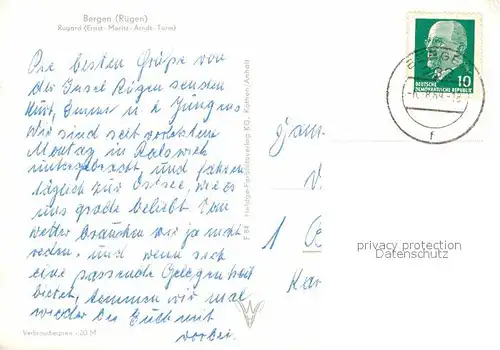 Bergen (Rügen)
Rugard (Ernst-Moritz-Arndt-Turm)
Die besten Grüße von
der Insel Rügen senden
Kurt, und 2 Jungens
Wir sind seit vorletztem
Montag in Ralswiek
untergebracht, und fahren
täglich zur Ostsee, wie es
uns grade beliebt. Vom
Wetter brauchen wir ja nicht
reden, und wenn sich
eine passende Gelegenheit
bietet, kommen wir mal
wieder bei Euch mit
vorbei.
Verbraucherpreis -,20 M
F 84 Heldge-Farbfotoverlag KG., Köthen-Anhalt
DEUTSCHE
DEMOKRATISCHE REPUBLIK
10
f
1
privacy protection
Datenschutz